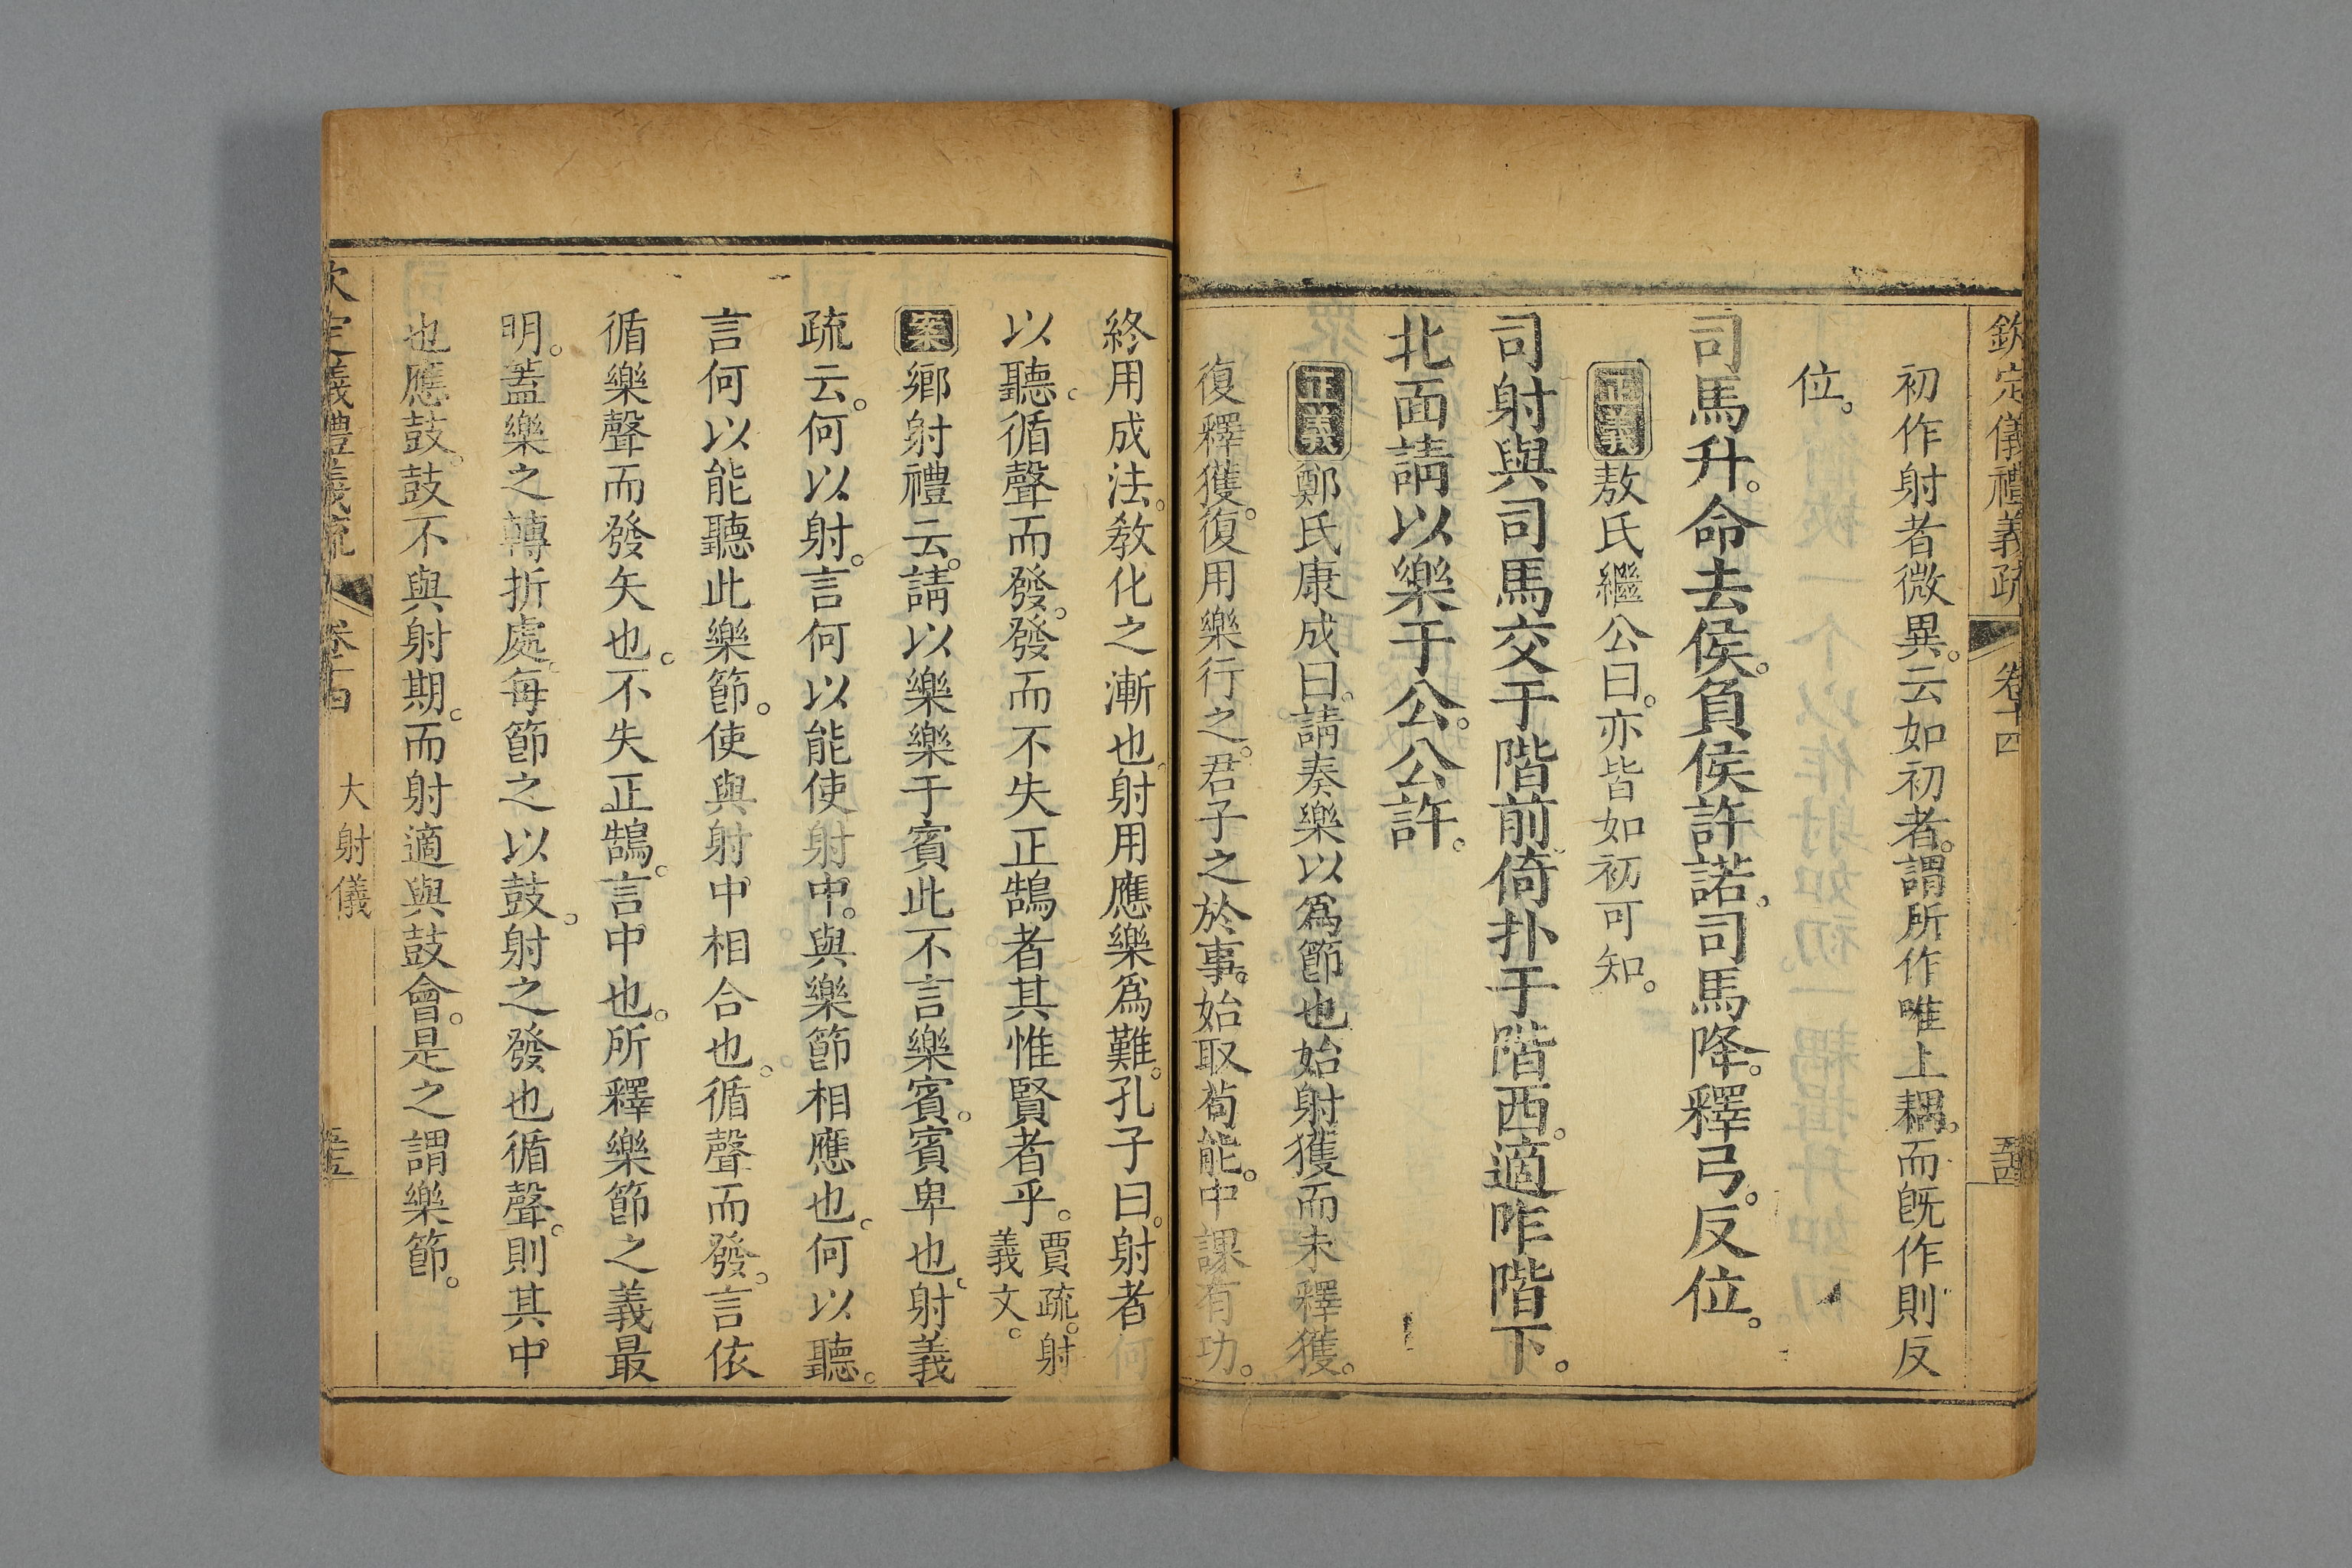 欽定儀禮義疏 卷十四 五四
初作射者微異。云如初者。謂所作唯上耦。而旣作則反
位。
司馬升。命去侯。負侯許諾。司馬降。釋弓。反位。
正義 敖氏繼公曰。亦皆如初可知。
司射與司馬交于階前倚扑于階西。適阼階下。
北面請以樂于公。公許。
正義 鄭氏康成曰。請奏樂以爲節也始射獲而未釋獲。
復釋獲。復用樂行之。君子之於事。始取苟能。中課有功。
終用成法。敎化之漸也。射用應樂爲難。孔子曰。射者何
以聽。循聲而發。發而不失正鵠者其惟賢者乎。賈疏。射
義文。
案 鄉射禮云。請以樂樂于賓此不言樂賓。賓卑也。射義
疏云。何以射。言何以能使射中。與樂節相應也。何以聽。
言何以能聽此樂節。使與射中相合也。循聲而發。言依
循樂聲而發矢也。不失正鵠。言中也。所釋樂節之義最
明。蓋樂之轉折處。每節之以鼓。射之發也循聲。則其中
也應鼓。鼓不與射期。而射適與鼓會。是之謂樂節。
欽定儀禮義疏 卷十四 大射儀 五五